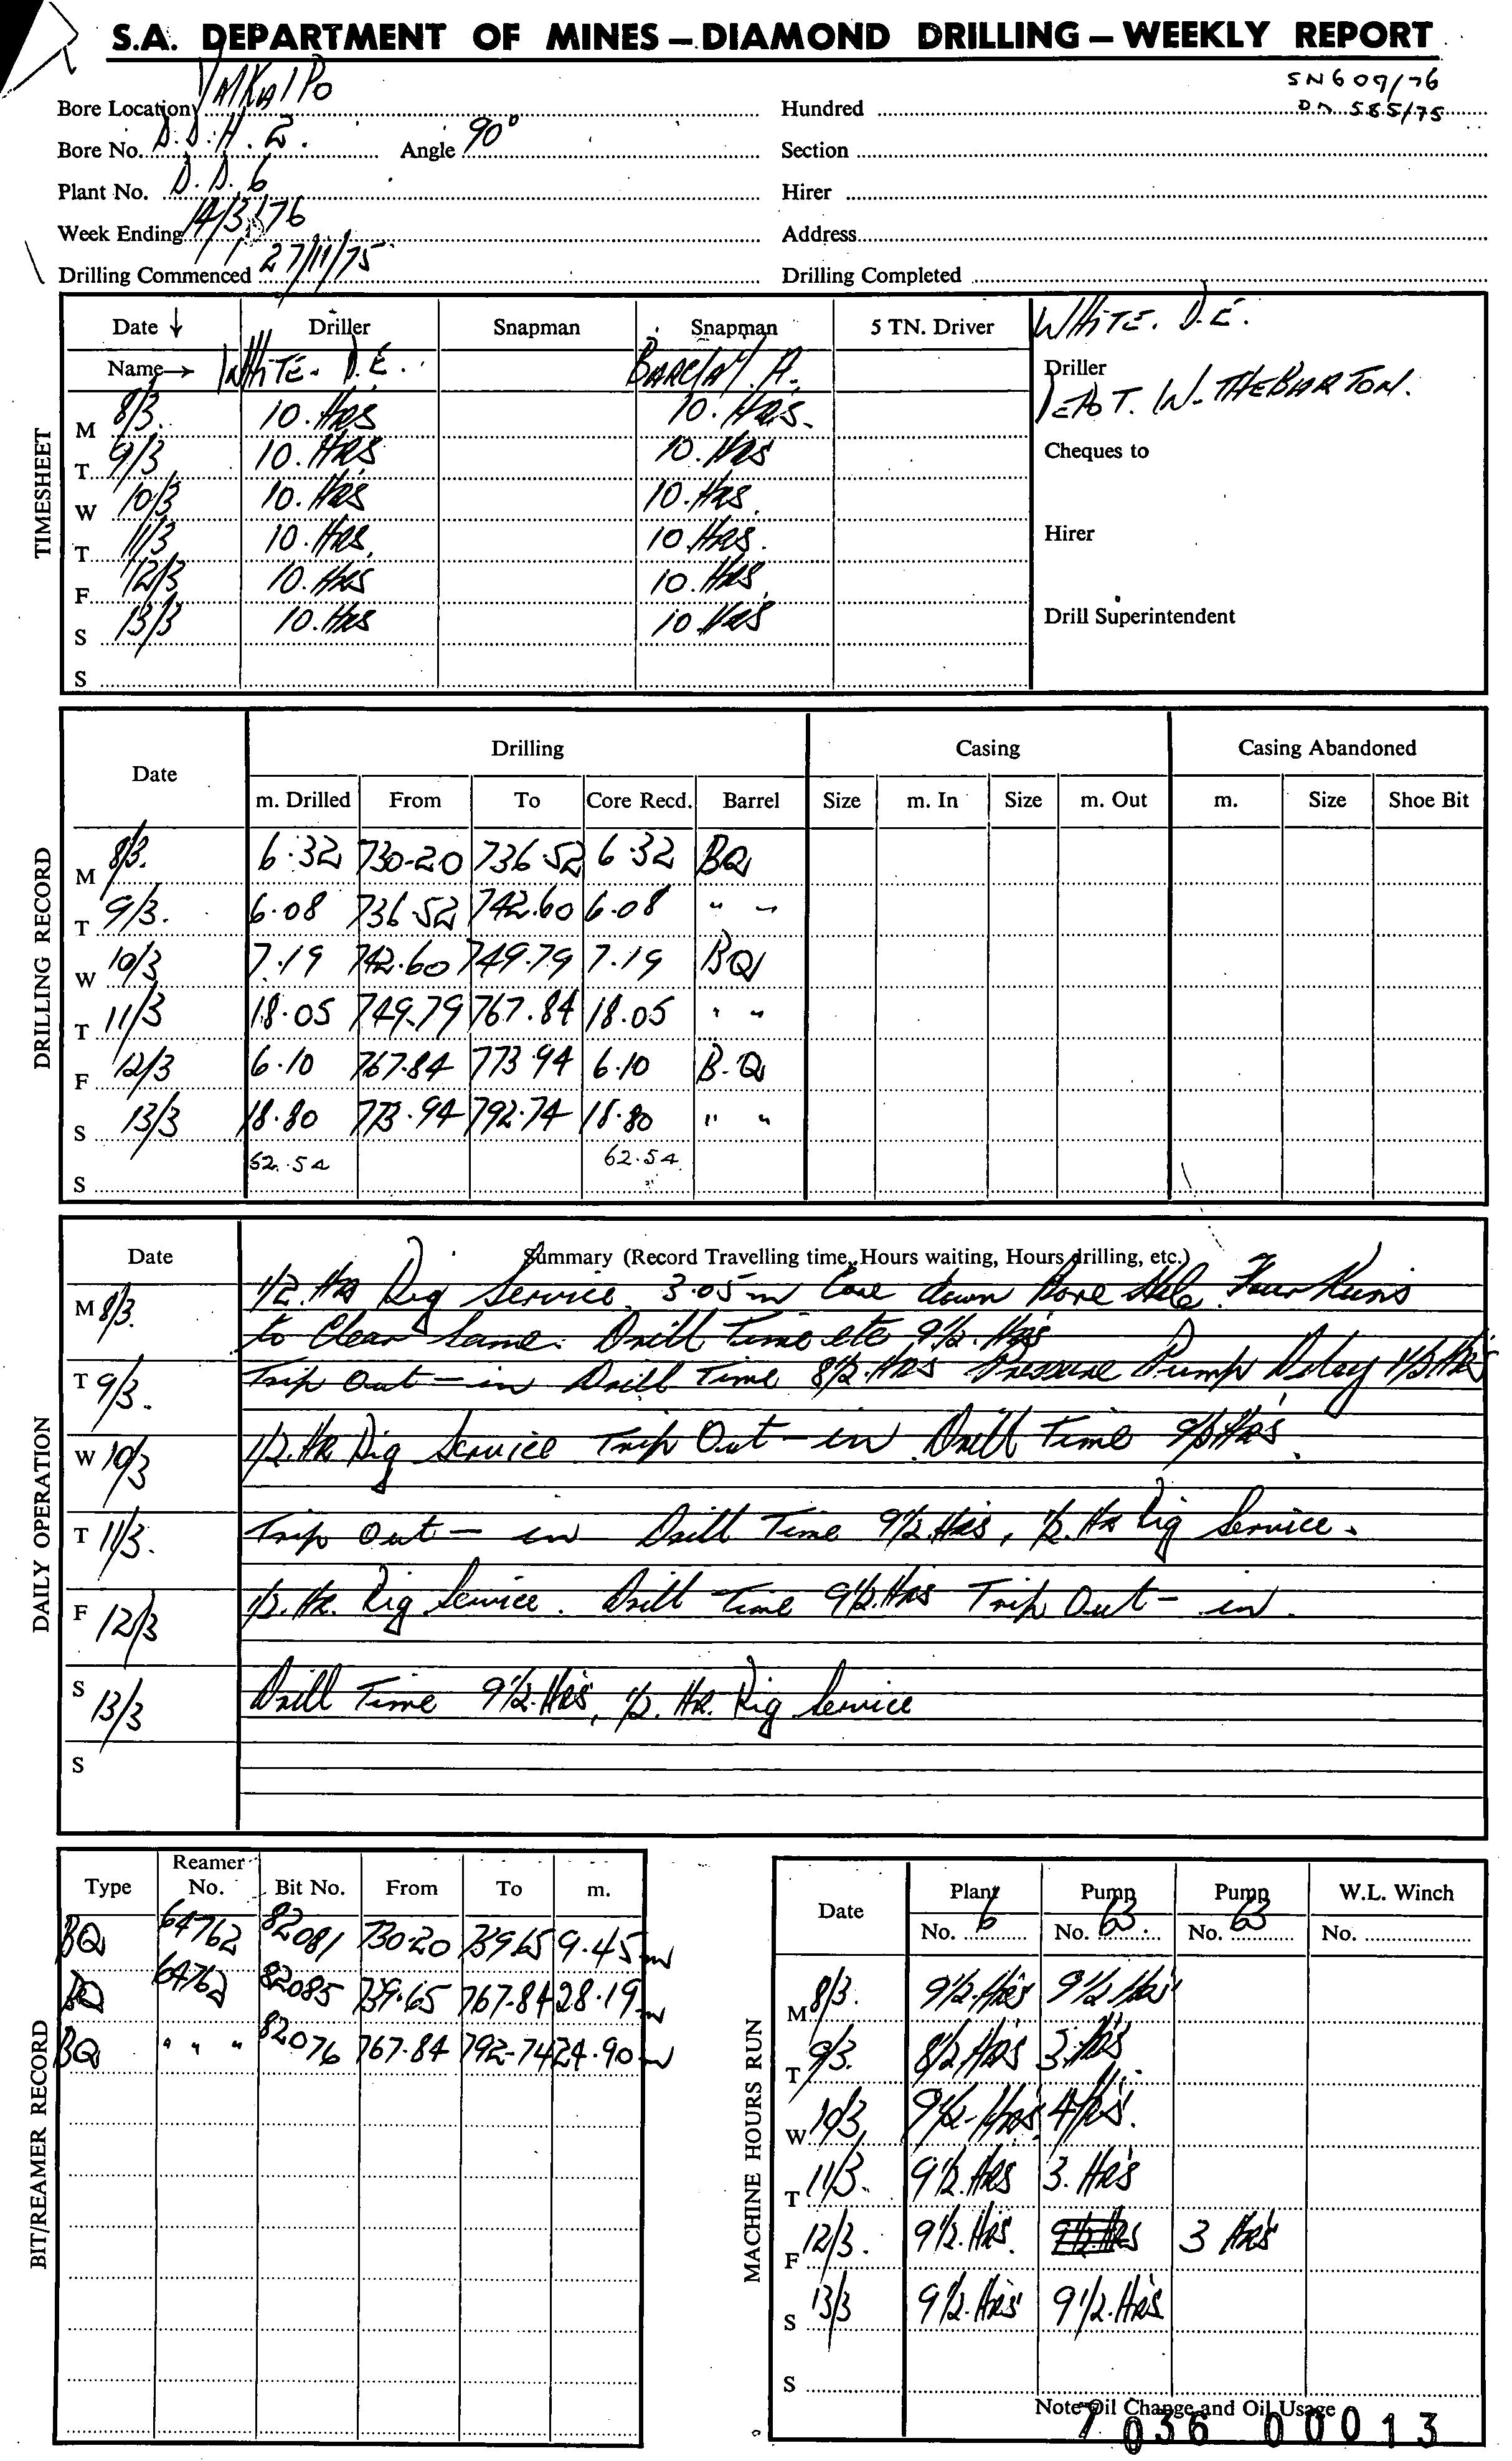 S.A. DEPARTMENT OF MINES – DIAMOND DRILLING – WEEKLY REPORT
SN 609/76
Bore Location YALKALPO Hundred DN 585/75
Bore No. D.D.H. 2. Angle 90° Section
Plant No. D.D. 6 Hirer
Week Ending 14/3/76 Address
Drilling Commenced 27/11/75 Drilling Completed
TIMESHEET
Date ↓ Driller Snapman Snapman 5 TN. Driver WHITE. D.E.
Name → WHITE. D.E. BARCLAY. A. Driller
M 8/3. 10. HRS 10. HRS. DEPOT. W. THEBARTON.
T 9/3 10. HRS 10. HRS Cheques to
W 10/3 10. HRS 10. HRS
T 11/3 10. HRS 10. HRS. Hirer
F 12/3 10. HRS 10. HRS
S 13/3 10. HRS 10 HRS Drill Superintendent
S
DRILLING RECORD
Date Drilling Casing Casing Abandoned
m. Drilled From To Core Recd. Barrel Size m. In Size m. Out m. Size Shoe Bit
M 8/3. 6.32 730-20 736.52 6.32 BQ
T 9/3. 6.08 736.52 742.60 6.08 " "
W 10/3 7.19 742.60 749.79 7.19 BQ
T 11/3 18.05 749.79 767.84 18.05 " "
F 12/3 6.10 767.84 773.94 6.10 B.Q
S 13/3 18.80 773.94 792.74 18.80 " "
62.54 62.54
S
DAILY OPERATION
Date Summary (Record Travelling time, Hours waiting, Hours drilling, etc.)
M 8/3. 1/2. HR Rig Service. 3.05m Core down Bore Hole. Four Runs
to Clear Same. Drill Time etc 9 1/2. Hrs
T 9/3. Trip Out – in Drill Time 8 1/2. HRS Pressure Pump Delay 1 1/2 HRS
W 10/3 1/2. HR Rig Service Trip Out – in Drill Time 9 1/2 HRS.
T 11/3. Trip Out – in Drill Time 9 1/2 HRS, 1/2. HR Rig Service.
F 12/3 1/2. HR. Rig Service. Drill Time 9 1/2. HRS Trip Out – in.
S 13/3 Drill Time 9 1/2. HRS, 1/2. HR. Rig Service
S
BIT/REAMER RECORD
Type Reamer No. Bit No. From To m.
BQ 64762 82081 730.20 739.65 9.45m
BQ 64762 82085 739.65 767.84 28.19m
BQ " " " 82076 767.84 792.74 24.90m
MACHINE HOURS RUN
Date Plant Pump Pump W.L. Winch
No. 6 No. 63. No. 63 No.
M 8/3. 9 1/2. HRS 9 1/2 HRS
T 9/3. 8 1/2 HRS 3. HRS
W 10/3 9 1/2. HRS 4 HRS.
T 11/3. 9 1/2. HRS 3. HRS
F 12/3. 9 1/2. HRS. 3 HRS
S 13/3 9 1/2. HRS 9 1/2. HRS
S
Note Oil Change and Oil Usage
7036 00013